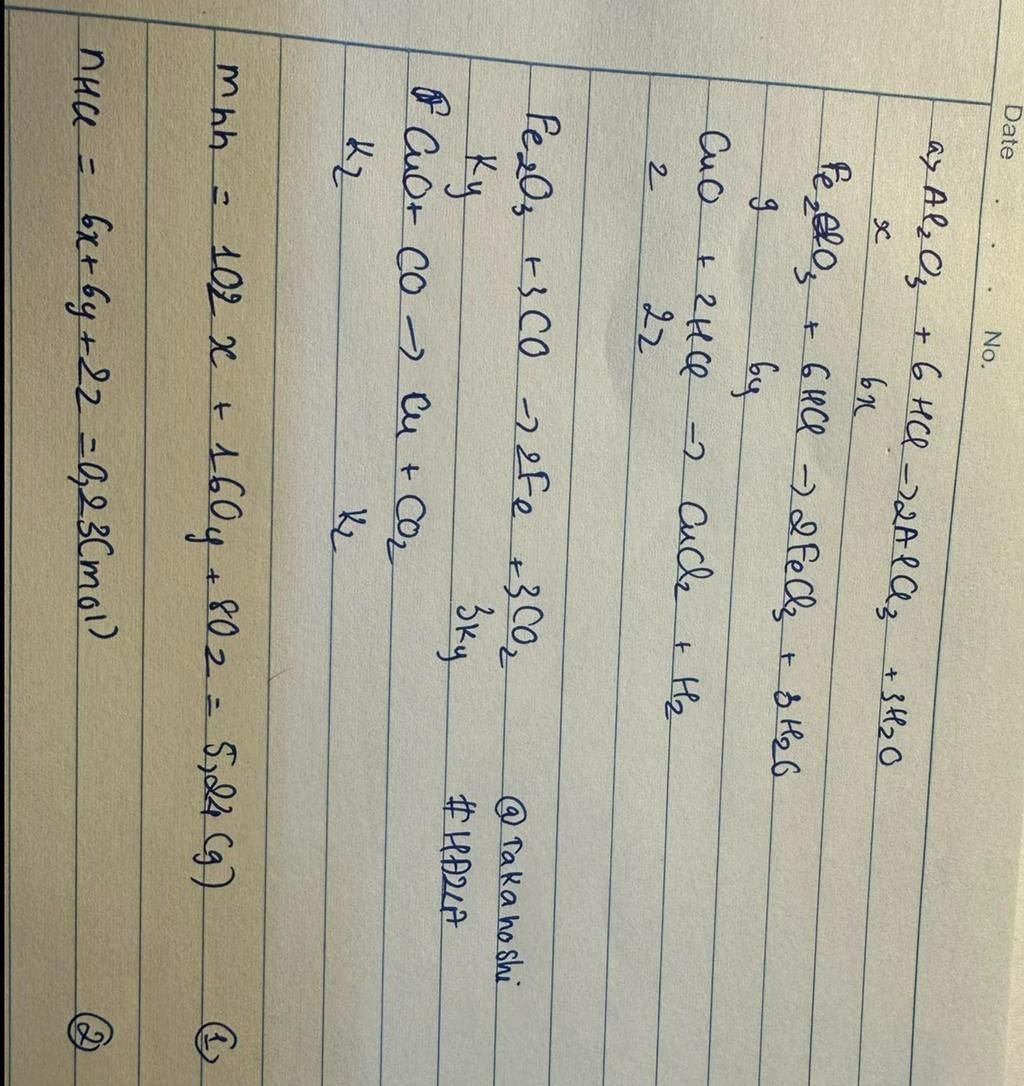 Date . . . No.
a, Al₂O₃ + 6 HCl → 2AlCl₃ + 3H₂O
x 6x
Fe₂O₃ + 6HCl → 2FeCl₃ + 3H₂O
y 6y
CuO + 2HCl → CuCl₂ + H₂
z 2z
Fe₂O₃ + 3CO → 2Fe + 3CO₂ @Takanoshi
Ky 3Ky #HD2LA
CuO + CO → Cu + CO₂
Kz Kz
mhh = 102 x + 160y + 80z = 5,24 (g) (1)
nHCl = 6x + 6y + 2z = 0,23(mol) (2)